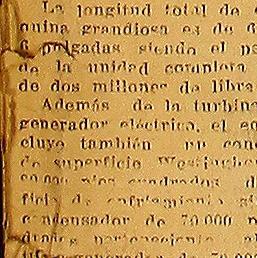 La longitud total de
quina grandiosa es de 6
6 pulgadas siendo el pe
de la unidad completa
de dos millones de libra
Además de la turbina
generador eléctrico, el eq
cluye también un con
de superficie Westingho
cuadrados d
ficie de enfriamiento
condensador de 70.000 p
al